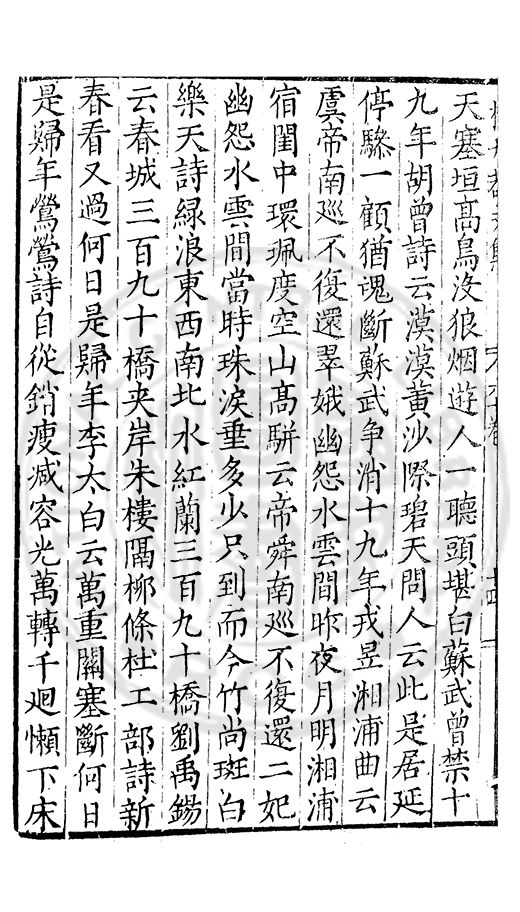 天塞垣高鳥沒狼烟遊人一聽頭堪白蘇武曾禁十
九年胡曾詩云漠漠黃沙際碧天問人云此是居延
停驂一顧猶魂斷蘇武爭消十九年戎昱湘浦曲云
虞帝南廵不復還翠娥幽怨水雲間昨夜月明湘浦
宿閨中環珮度空山高駢云帝舜南廵不復還二妃
幽怨水雲間當時珠淚垂多少只到而今竹尚斑白
樂天詩綠浪東西南北水紅蘭三百九十橋劉禹錫
云春城三百九十橋夾岸朱樓隔柳條杜工部詩新
春看又過何日是歸年李太白云萬重關塞斷何日
是歸年鶯鶯詩自從銷瘦减容光萬轉千廻懶下床